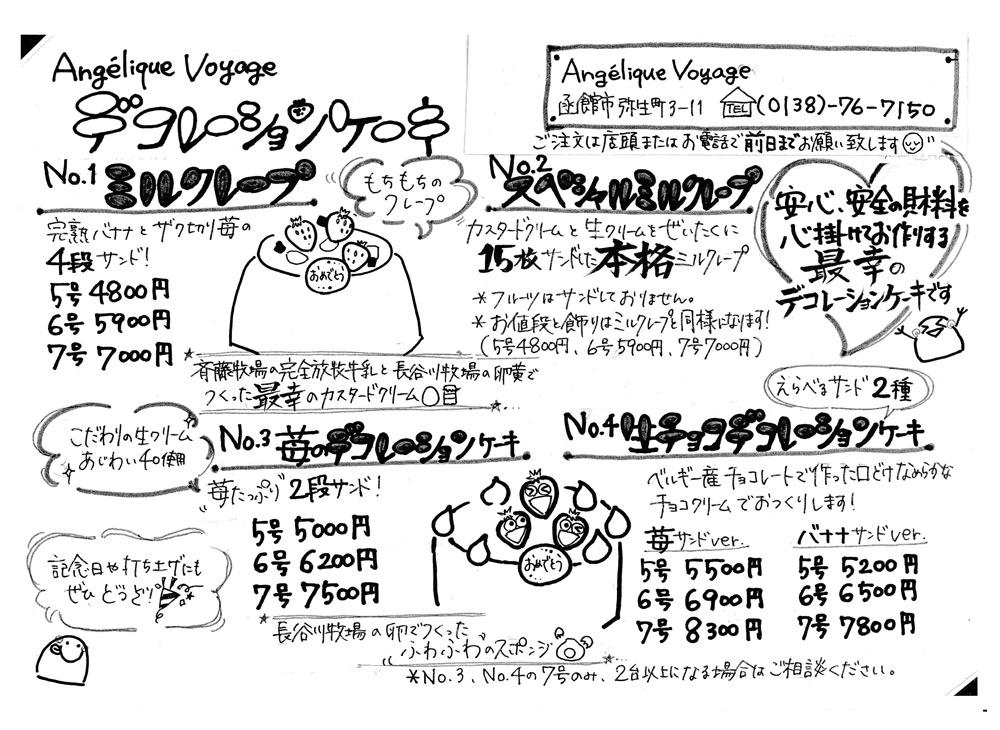 Angélique Voyage
デコレーションケーキ
Angélique Voyage
函館市弥生町3-11 TEL (0138)-76-7150
ご注文は店頭またはお電話で前日までお願い致します
No.1 ミルクレープ
もちもちの
クレープ
完熟バナナとザク切り苺の
4段サンド!
5号 4800円
6号 5900円
7号 7000円
おめでとう
斉藤牧場の完全放牧牛乳と長谷川牧場の卵黄で
つくった最幸のカスタードクリーム
No.2 スペシャルミルクレープ
カスタードクリームと生クリームをぜいたくに
15枚サンドした本格ミルクレープ
*フルーツはサンドしておりません。
*お値段と飾りはミルクレープと同様になります!
(5号4800円、6号5900円、7号7000円)
安心、安全の財料を
心掛けてお作りする
最幸の
デコレーションケーキです
こだわりの生クリーム
あじわい40使用
No.3 苺のデコレーションケーキ
苺たっぷり2段サンド!
5号 5000円
6号 6200円
7号 7500円
おめでとう
記念日や打ち上げにも
ぜひどうぞ!
長谷川牧場の卵でつくった
"ふわふわ"のスポンジ
えらべるサンド2種
No.4 生チョコデコレーションケーキ
ベルギー産チョコレートで作った口どけなめらかな
チョコクリームでおつくりします!
苺サンドver.
5号 5500円
6号 6900円
7号 8300円
バナナサンドver.
5号 5200円
6号 6500円
7号 7800円
*No.3、No.4の7号のみ、2台以上になる場合はご相談ください。